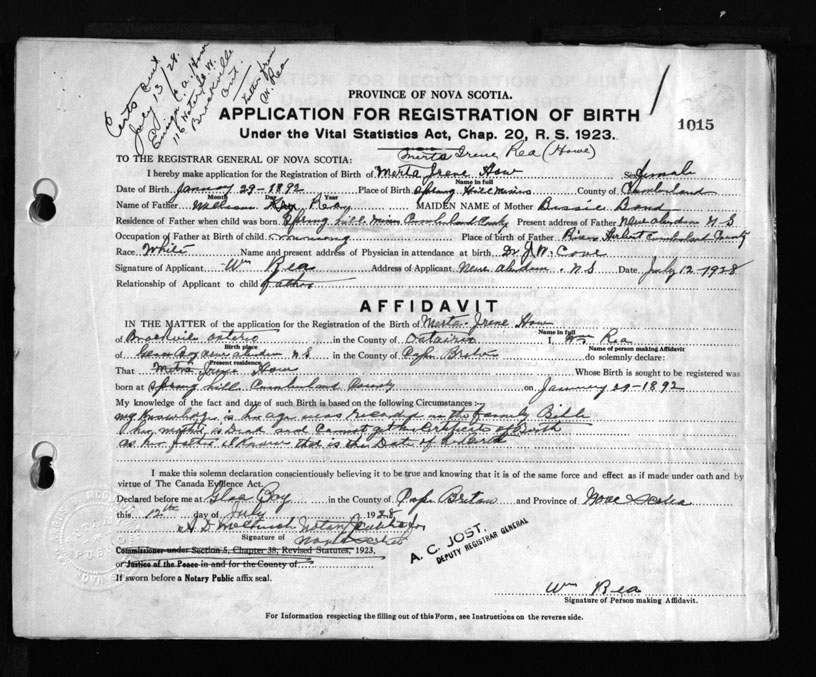 Certs Sent
July 13/28.
to
Ensign C.A. How
116 Water St. W.
Brockville
Ont.
Letter from
W. Rea
1015
PROVINCE OF NOVA SCOTIA.
APPLICATION FOR REGISTRATION OF BIRTH
Under the Vital Statistics Act, Chap. 20, R. S. 1923.
Merta Irene Rea (Howe)
TO THE REGISTRAR GENERAL OF NOVA SCOTIA:
I hereby make application for the Registration of Birth of Merta Irene How Sex female
Name in full
Date of Birth January 29-1892 Place of Birth Spring Hill Mines County of Cumberland
Month Day Year
Name of Father William Ray MAIDEN NAME of Mother Bessie Bond
Residence of Father when child was born. Spring hill mines Cumberland County Present address of Father New N S
Occupation of Father at Birth of child Place of birth of Father River Cumberland County
Race White Name and present address of Physician in attendance at birth Dr J W Cove
Signature of Applicant Wm Rea Address of Applicant New N.S Date July 12-1928
Relationship of Applicant to child father
AFFIDAVIT
IN THE MATTER of the application for the Registration of the Birth of Merta Irene How
Name in full
of Brockvile ontero in the County of I, Wm Rea
Birth place Name of person making Affidavit
of Glace Bay New N S in the County of Cape Breton do solemnly declare:
Present residence
That Merta Irene How Whose Birth is sought to be registered was
born at Spring hill Cumberland County on January 29-1892
My knowledge of the fact and date of such Birth is based on the following Circumstances:
my Knowledge is her age was in the family Bible
her mother is Dead and Cannot get the of Birth
as her father I Know this is the Date of Birth
I make this solemn declaration conscientiously believing it to be true and knowing that it is of the same force and effect as if made under oath and by
virtue of The Canada Evidence Act.
Declared before me at Glace Bay in the County of Cape Breton and Province of Nova Scotia
this 12th day of July 1928
A D Notary Public for
Signature of Nova Scotia
Commissioner under Section 5, Chapter 38, Revised Statutes, 1923,
or Justice of the Peace in and for the County of
If sworn before a Notary Public affix seal.
A. C. JOST.
DEPUTY REGISTRAR GENERAL
Wm Rea
Signature of Person making Affidavit.
For Information respecting the filling out of this Form, see Instructions on the reverse side.